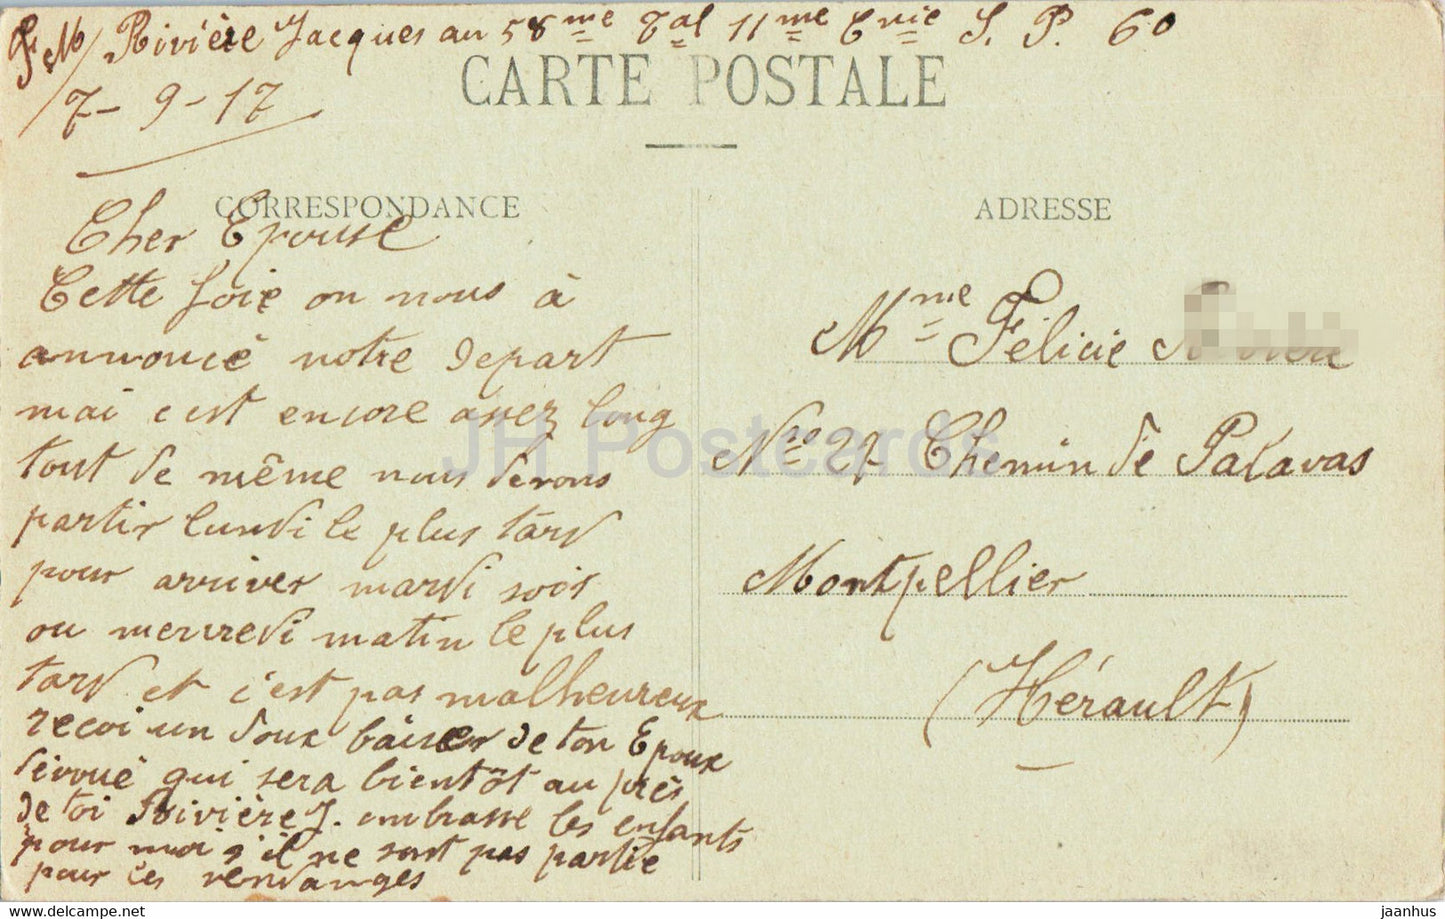 F. M/ Rivière Jacques au 58me Tal 11me Cnie S. P. 60
7-9-17
CARTE POSTALE
CORRESPONDANCE
ADRESSE
Cher Epouse
Cette foie on nous à
annoncé notre depart
mai c est encore assez long
tout de même nous devons
partir lundi le plus tard
pour arriver mardi soir
ou mercredi matin le plus
tard et c'est pas malheureux
recoi un doux baiser de ton Epoux
dévoué qui sera bientôt au près
de toi Rivière J. embrasse les enfants
pour moi s'il ne sont pas partie
pour les vendanges
Mme Félicie
No 27 Chemin de Palavas
Montpellier
(Hérault)
JH Postcards
delcampe.net
jaanhus